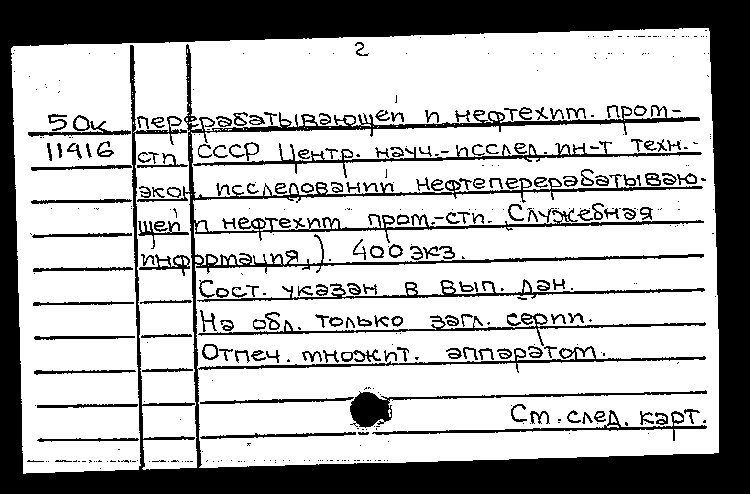 2
50к перерабатывающей и нефтехим. пром-
11416 сти СССР Центр. науч.-исслед. ин-т техн.-
экон. исследований нефтеперерабатываю-
щей и нефтехим пром.-сти. Служебная
информация,). 400 экз.
Сост. указан в вып. дан.
На обл. только загл. серии.
Отпеч. множит. аппаратом.
См. след. карт.